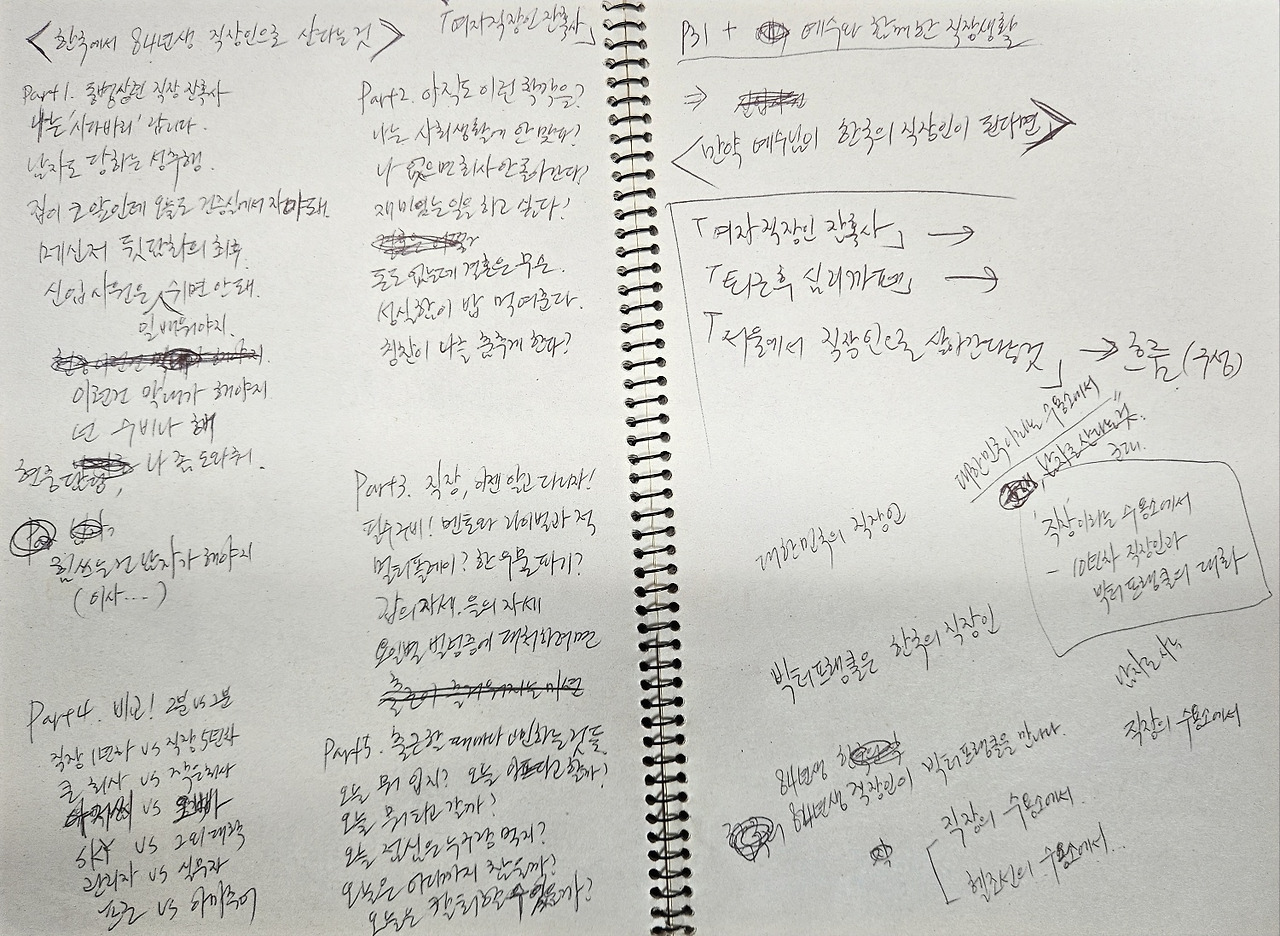 <한국에서 84년생 직장인으로 산다는것>
「여자직장인 잔혹사」
Part1. 동병상련 직장 잔혹사
나는 '시다바리' 입니다.
남자도 당하는 성추행.
집이 코앞인데 오늘도 건증실에서 자야돼.
메신저 뒷담화의 최후.
신입사원은 쉬면 안돼.
일 배워야지.
이런건 막내가 해야지
넌 수비나 해
현중단형, 나 좀 도와줘.
힘쓰는건 남자가 해야지
(이사...)
Part2. 아직도 이런 착각을?
나는 사회생활에 안 맞다?
나 없으면 회사 안 돌아간다?
재미있는 일을 하고 싶다!
돈도 없는데 결혼은 무슨.
성실함이 밥 먹여준다.
칭찬이 나를 춤추게 한다?
Part3. 직장, 이젠 알고 다니자!
필수구비! 멘토와 라이벌과 적
멀티플레이? 한 우물 파기?
갑의자세. 을의 자세
요일별 벌덤증에 대처하려면
Part4. 비교! 2분 vs 2분
직장 1년차 vs 직장 5년차
큰 회사 vs 작은회사
vs 오빠
SKY vs 그외 대학
관리자 vs 실무자
프로 vs 아마추어
Part5. 출근할 때마다 고민하는것들
오늘 뭐 입지? 오늘 아프다고 할까?
오늘 뭐 타고 갈까?
오늘 점심은 누구랑 먹지?
오늘은 어디까지 참을까?
오늘은 칼퇴할 수 있을까?
P31 + 예수와 함께한 직장생활
⇒
<만약 예수님이 한국의 직장인이 된다면>
「여자직장인 잔혹사」 →
「퇴근후 심리카페」 →
「서울에서 직장인으로 살아간다는것」 → 흐름 (구성)
대한민국이라는 수용소에서
남자로 산다는것.
군대.
'직장'이라는 수용소에서
- 10년차 직장인과
빅터 프랭클의 대화
대한민국의 직장인
빅터프랭클은 한국의 직장인
남자로 사는
직장의 수용소에서
84년생
84년생 직장인이 빅터프랭클을 만나다.
직장의 수용소에서..
헬조선의 수용소에서...